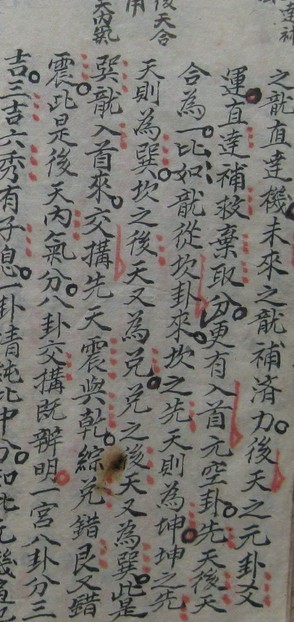 達補
後天合
用
天內氣
之龍直達機未來之龍補濟力後天之元卦文
運直達補救棄取分更有入首元空卦先天後天
合為一比如龍從坎卦來坎之先天則為坤坤之先
天則為巽坎之後天又為兌兌之後天又為巽此是
巽龍入首來交搆先天震與乾綜兌錯艮又錯
震此是後天內氣分八卦交搆既辦明一宮八卦分三
吉三吉六秀有子息一卦清純比中分